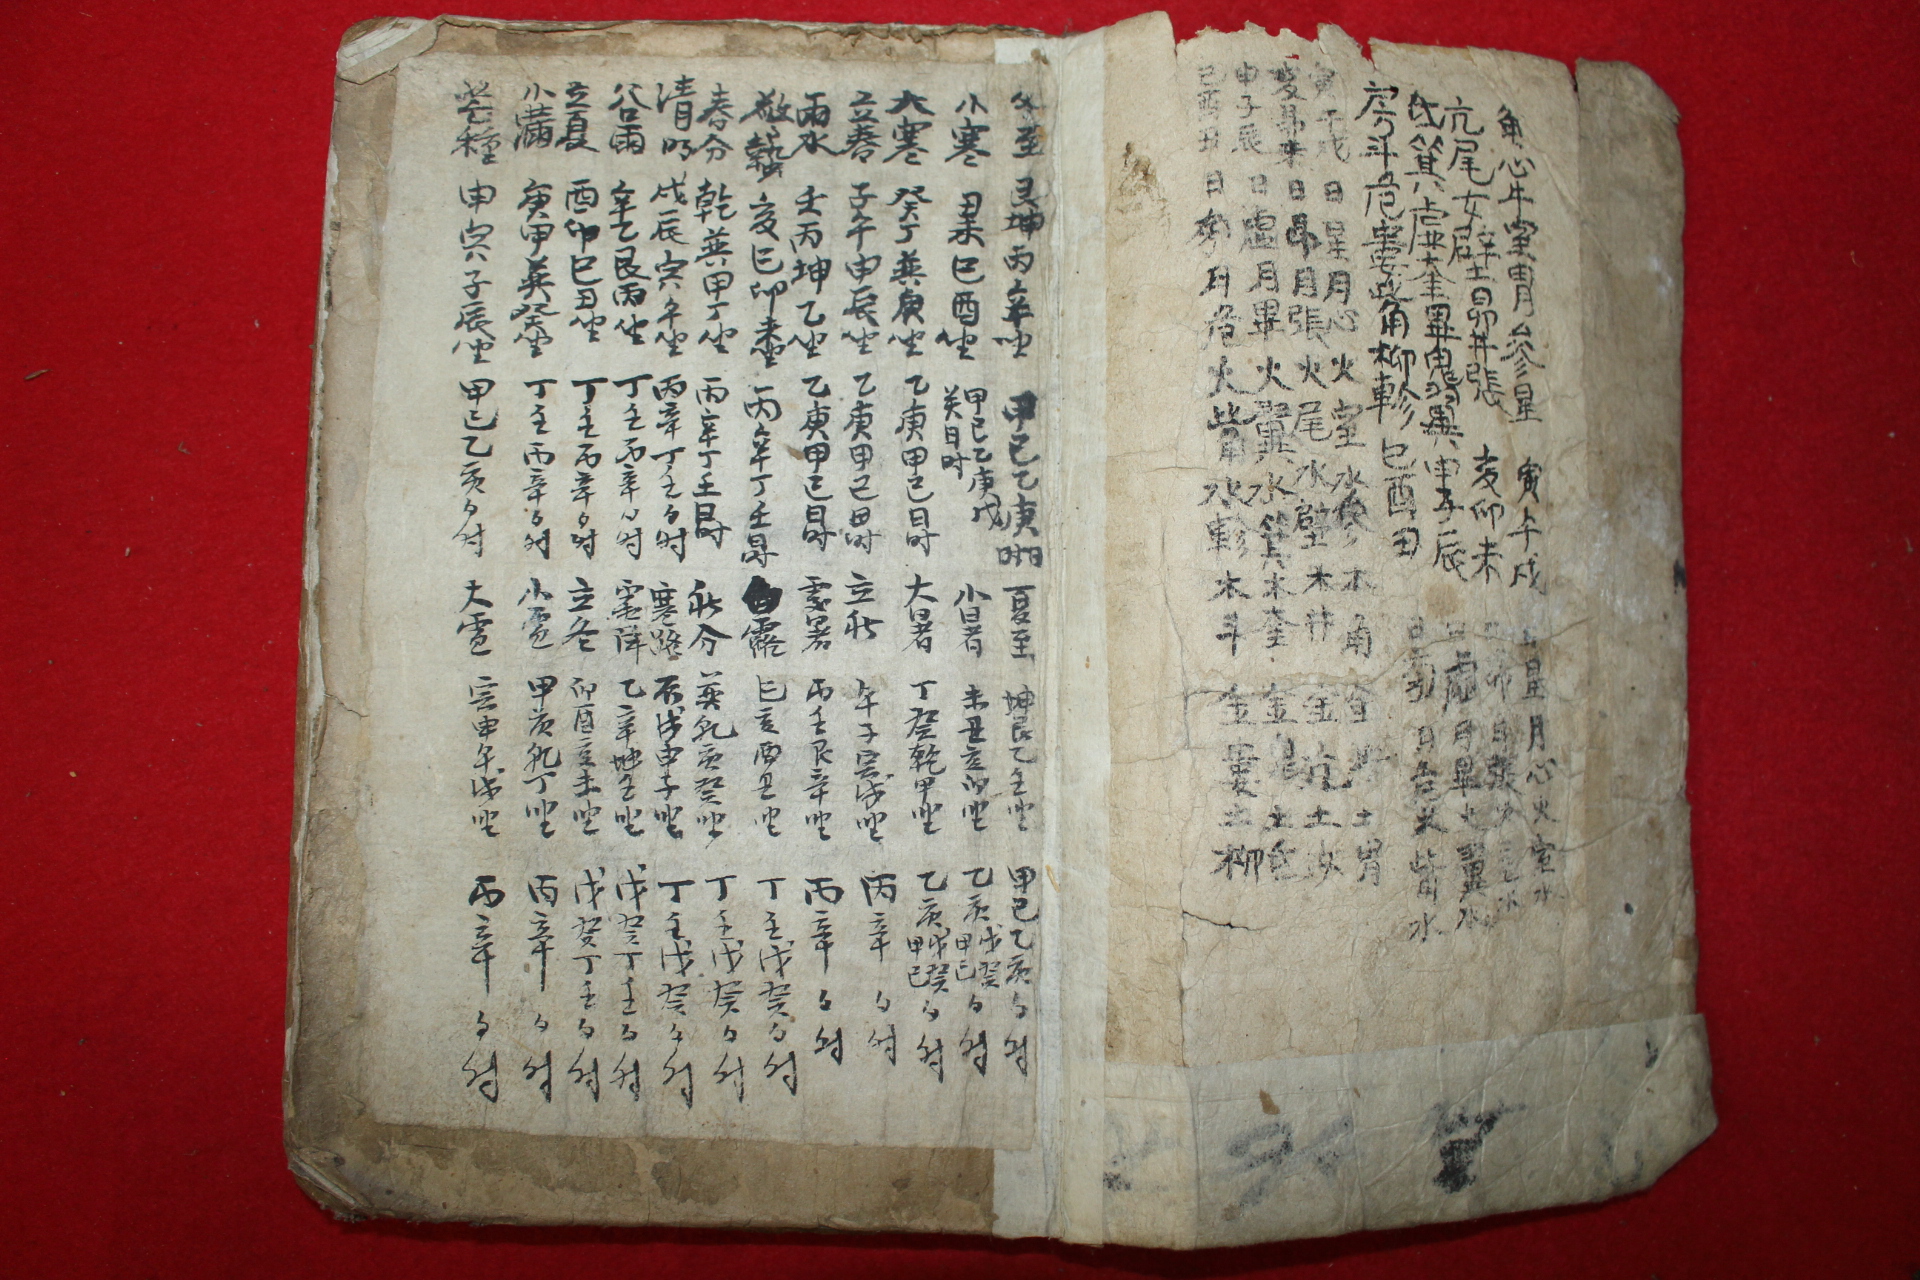 角心牛室胃參星 寅午戌 日星月心火室水
亢尾女壁昴井張 亥卯未
氐箕虛奎畢鬼翼 申子辰 日虛月畢火翼水
房斗危婁觜角柳軫 巳酉丑 日房月危火觜水
寅午戌 日星月心火室水參木角金 土胃
亥卯未 日昴月張火尾水壁木井金亢土女
申子辰 日虛月畢火翼水箕木奎金 土
巳酉丑 日房月危火觜水軫木斗金婁土柳
冬至 艮坤丙辛坐 甲己乙庚日时 夏至 坤艮乙壬坐 甲己乙庚日时
小寒 丑未巳酉坐 甲己乙庚戊癸日时 小暑 未丑亥卯坐 乙庚戊癸甲己日时
大寒 癸丁巽庚坐 乙庚甲己日时 大暑 丁癸乾甲坐 乙庚戊癸甲己日时
立春 子午申辰坐 乙庚甲己日时 立秋 午子寅戌坐 丙辛日时
雨水 壬丙坤乙坐 乙庚甲己日时 處暑 丙壬艮辛坐 丙辛日时
敬蟄 亥巳卯未坐 丙辛丁壬日时 白露 巳亥酉丑坐 丁壬戊癸日时
春分 乾巽甲丁坐 丙辛丁壬日时 秋分 巽乾庚癸坐 丁壬戊癸日时
清明 戌辰寅午坐 丙辛丁壬日时 寒路 辰戌申子坐 丁壬戊癸日时
谷雨 辛乙艮丙坐 丁壬丙辛日时 霜降 乙辛坤壬坐 戊癸丁壬日时
立夏 酉卯巳丑坐 丁壬丙辛日时 立冬 卯酉亥未坐 戊癸丁壬日时
小滿 庚甲巽癸坐 丁壬丙辛日时 小雪 甲庚乾丁坐 丙辛日时
芒種 申寅子辰坐 甲己乙庚日时 大雪 寅申午戌坐 丙辛日时